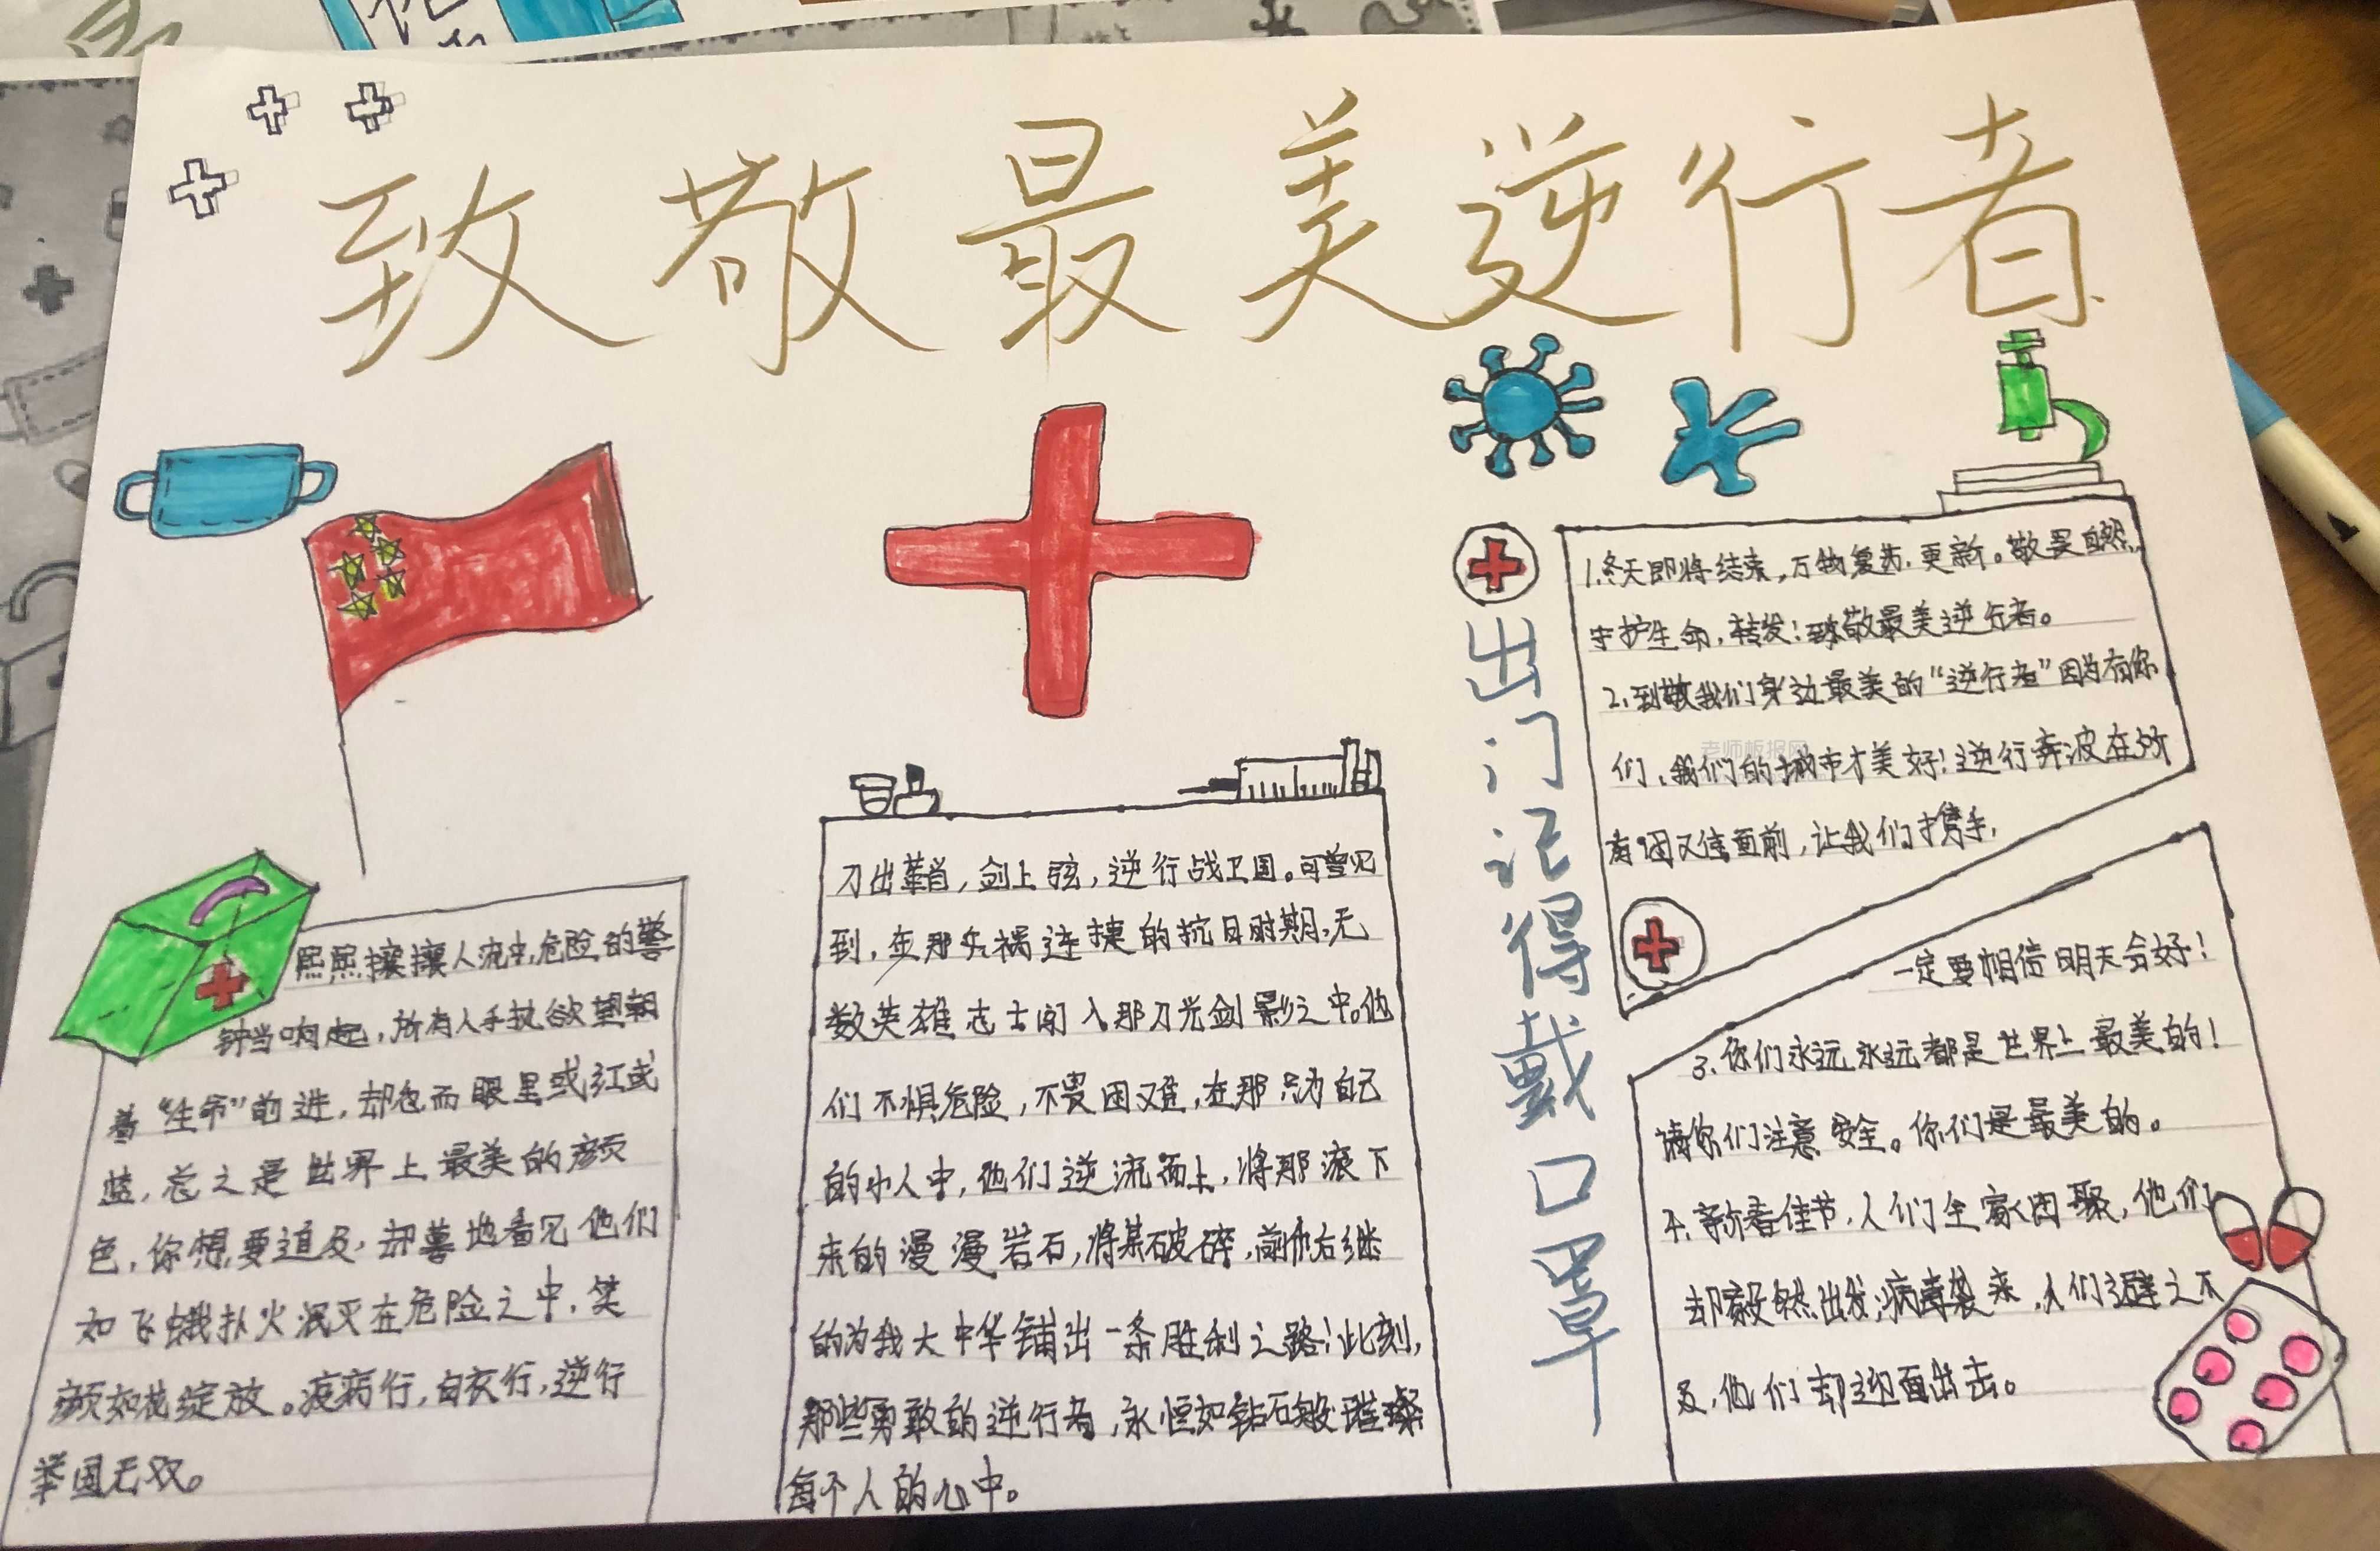 致敬最美逆行者
熙熙攘攘人流中,危险的警
钟当响起,所有人手执欲望朝
着“生命”前进,却也而眼里或红或
蓝,总之是世界上最美的颜
色,你想要追及,却蓦地看见他们
如飞蛾扑火泯灭在危险之中,笑
颜如花绽放。疫病行,白衣行,逆行
举国无双。
刀出鞘,剑上弦,逆行战卫国。可曾见
到,在那头祸连接的抗日时期,无
数英雄志士闯入那刀光剑影之中。他
们不惧危险,不畏困难,在那只为自己
的小人中,他们逆流而上,将那滚下
来的漫漫岩石,将其破碎,前仆后继
的为我大中华铺出一条胜利之路!此刻,
那些勇敢的逆行者,永恒如钻石般璀璨
每个人的心中。
出门记得戴口罩
1.冬天即将结束,万物复苏.更新。敬畏自然,
守护生命,转发!致敬最美逆行者。
2.到敬我们身边最美的“逆行者”因为有你
们,我们的城市才美好!逆行奔波在所
有困又佳面前,让我们携手,
老师板报网
一定要相信明天会好!
3.你们永远永远都是世界上最美的!
请你们注意安全。你们是最美的。
4.新春佳节,人们全家团聚,他们
却毅然出发;病毒袭来,人们避之不
及,他们却迎面出击。